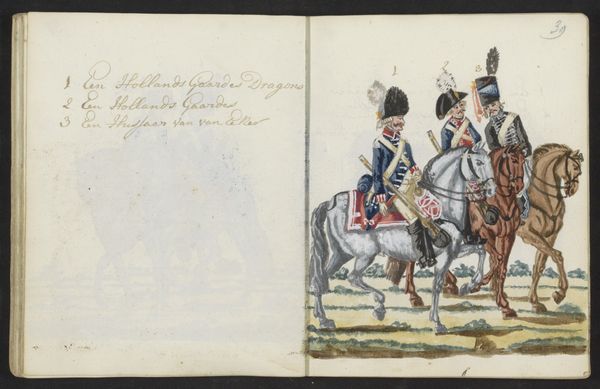 1 Een Hollands Gaardes Dragons
2 En Hollands Gaardes
3 En Hussaar van van Eker
39
1 2 3
6